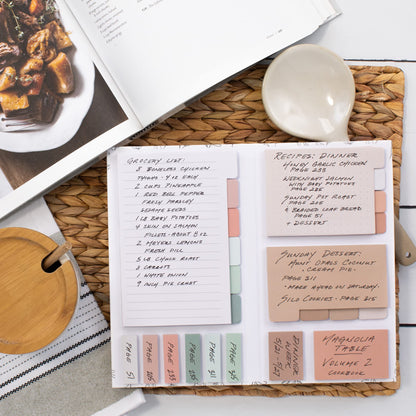 GROCERY LIST:
8 BONELESS CHICKEN
THIGHS - 4 OZ EACH
2 CUPS PINEAPPLE
1 RED BELL PEPPER
FRESH PARSLEY
SESAME SEEDS
1 LB BABY POTATOES
4 SKIN ON SALMON
FILLETS - ABOUT 8 OZ
2 MEYERS LEMONS
FRESH DILL
5 LB CHUCK ROAST
8 CARROTS
1 WHITE ONION
9 INCH PIE CRUST
RECIPES: DINNER
HONEY GARLIC CHICKEN
PAGE 233
WEEKNIGHT SALMON
WITH BABY POTATOES
PAGE
SUNDAY POT ROAST
PAGE
& BRAIDED LOAF BREAD
PAGE 51
+ DESSERT
SUNDAY DESSERT:
AUNT OPALS COCONUT
CREAM PIE.
PAGE 311
- MORE AHEAD ON SATURDAY.
SILO COOKIES - PAGE 315
PAGE 51
PAGE
PAGE 233
PAGE
PAGE 311
PAGE 315
DINNER
WEEK
MAGNOLIA
TABLE
VOLUME 2
COOKBOOK